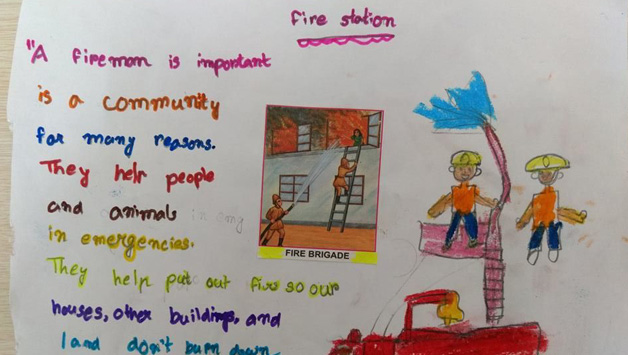 Fire station
"A fireman is important
is a community
for many reasons.
They help people
and animals in emg
in emergencies.
They help put out fire so our
houses, other buildings, and
land don't burn down.
FIRE BRIGADE